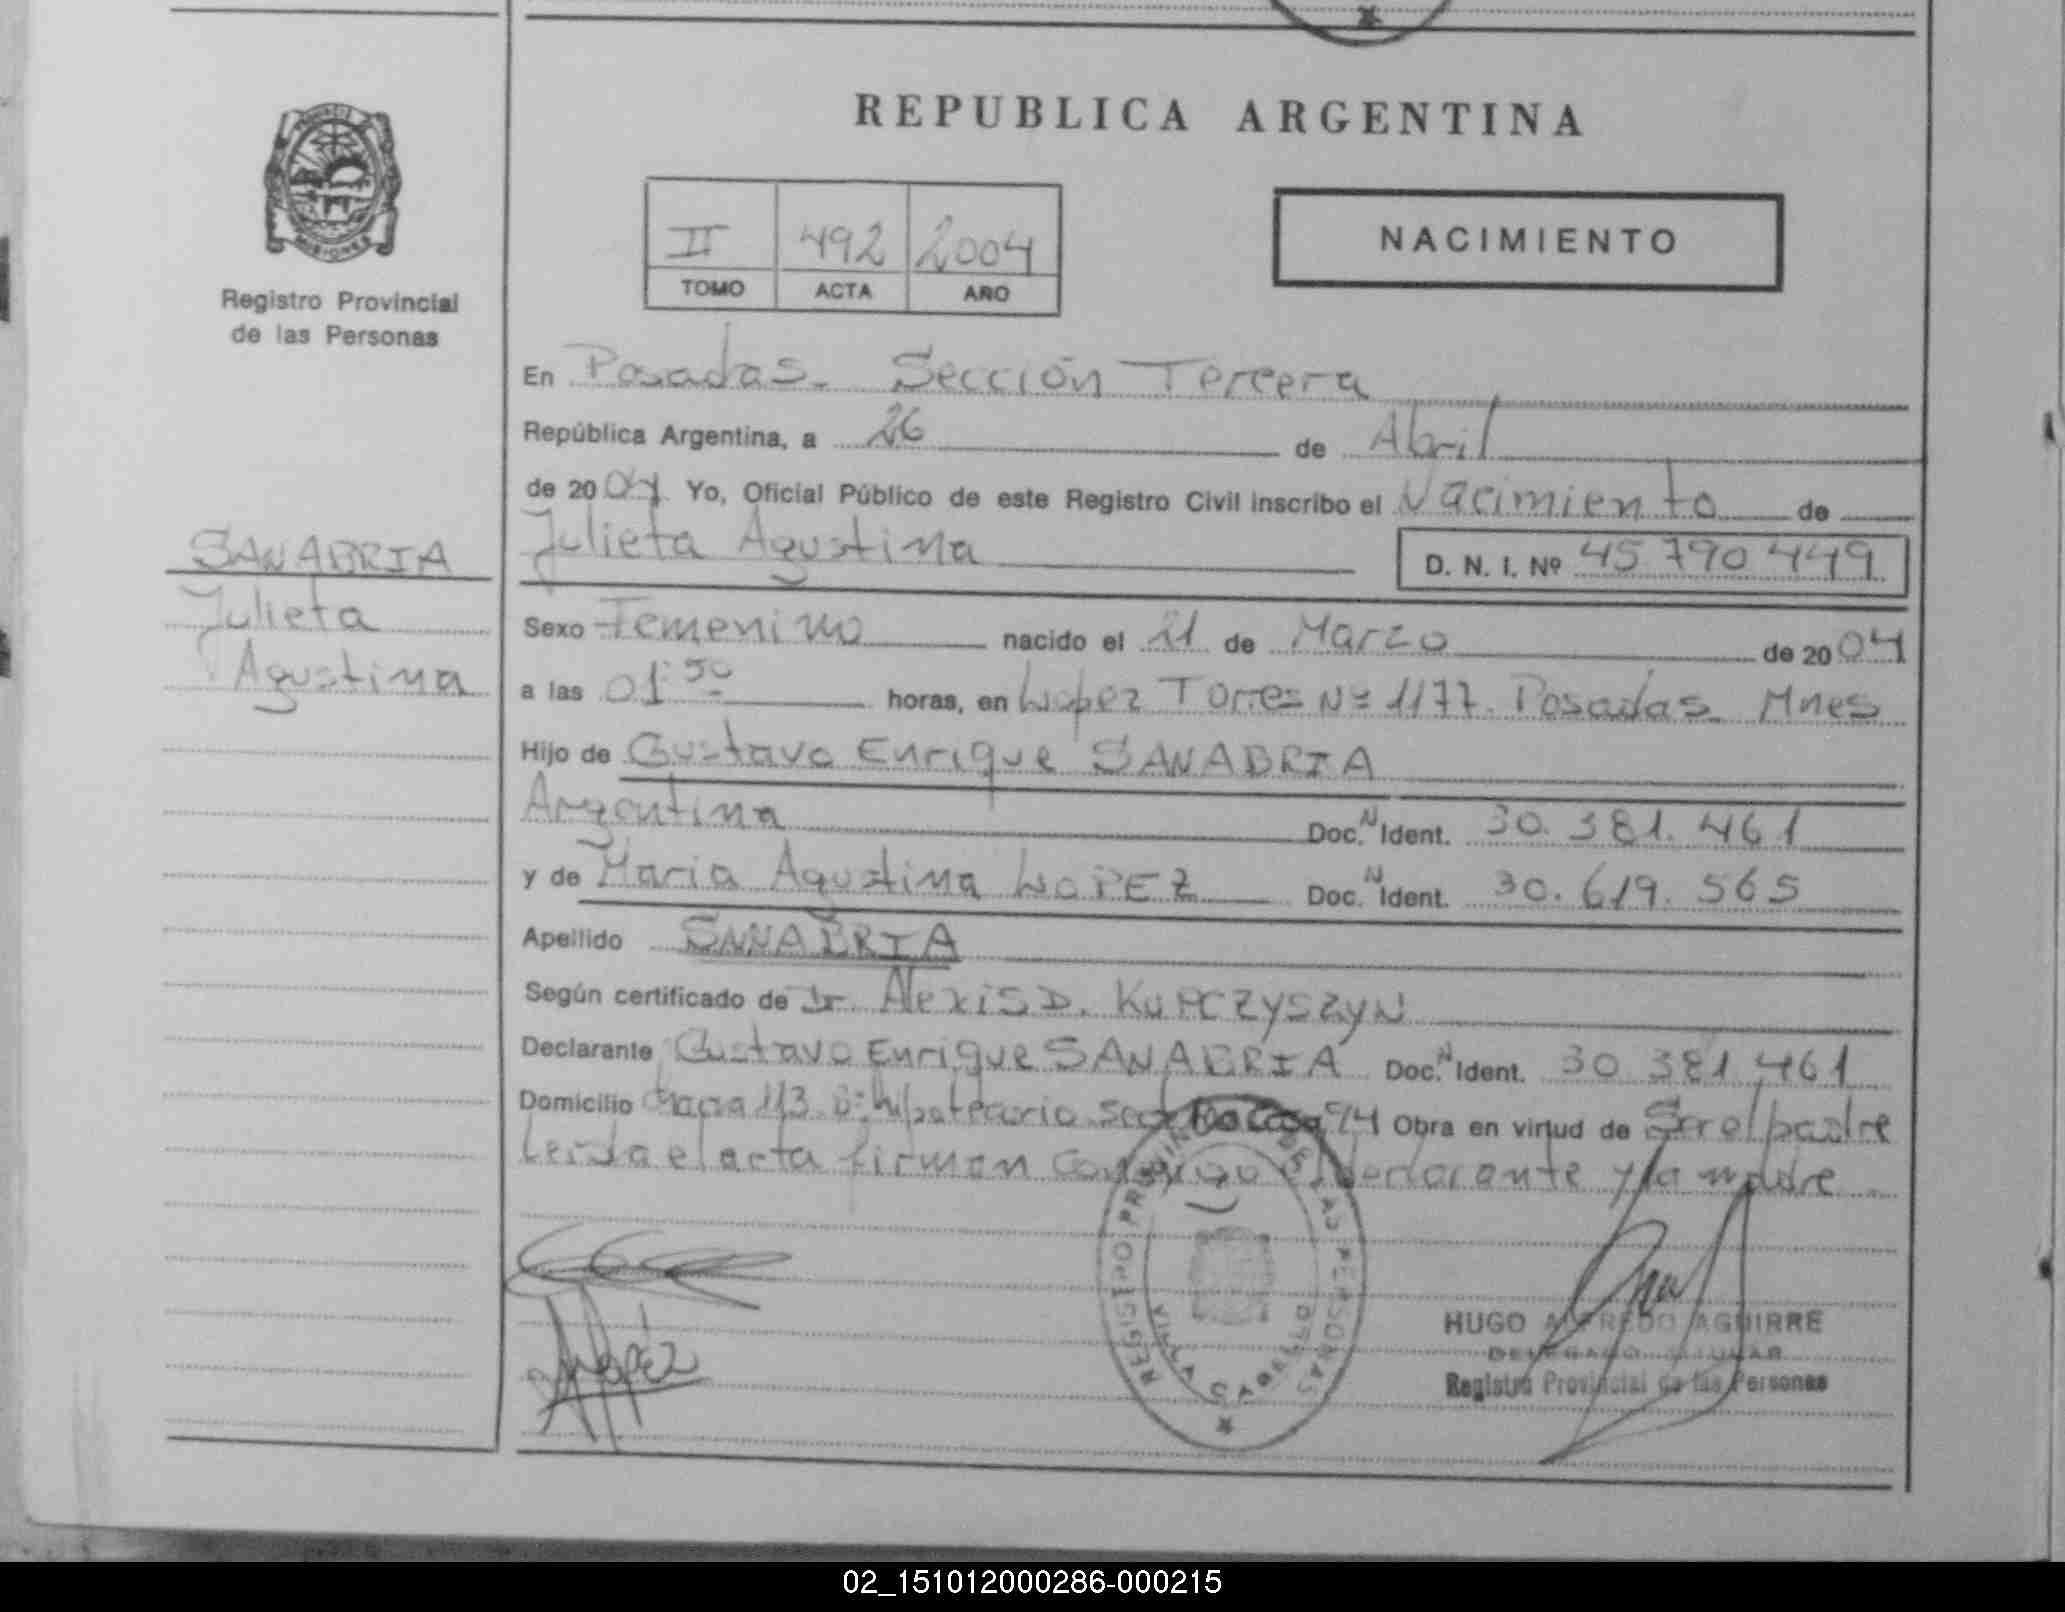 REPUBLICA ARGENTINA
MISIONES
Registro Provincial
de las Personas
II 492 2004
TOMO ACTA AÑO
NACIMIENTO
En Posadas. Sección Tercera
República Argentina, a 26 de Abril
de 2004 Yo, Oficial Público de este Registro Civil inscribo el Nacimiento de
Julieta Agustina D. N. I. Nº 45 790 449
SANABRIA
Julieta
Agustina
Sexo Femenino nacido el 21 de Marzo de 2004
a las 01:50 horas, en Lopez Torres Nº 1177. Posadas Mnes
Hijo de Gustavo Enrique SANABRIA
Argentina Doc. N Ident. 30.381.461
y de Maria Agustina LOPEZ Doc. N Ident. 30.619.565
Apellido SANABRIA
Según certificado de Dr. Alexis D. KUPCZYSZYN
Declarante Gustavo Enrique SANABRIA Doc. N Ident. 30 381 461
Domicilio Chacra 113 Bº hipotecario Casa 94 Obra en virtud de Ser el padre
Leida el acta firman conmigo el declarante y la madre
Lopez
REGISTRO PROVINCIAL DE LAS PERSONAS
VILLA CABELLO
HUGO ALFREDO AGUIRRE
DELEGADO TITULAR
Registro Provincial de las Personas
02_151012000286-000215